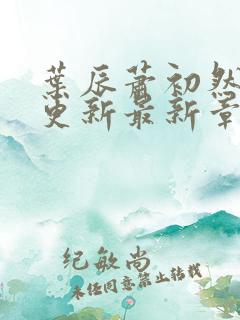 葉辰蕭初然
更新最新章
纪敏尚
未经同意禁止转载